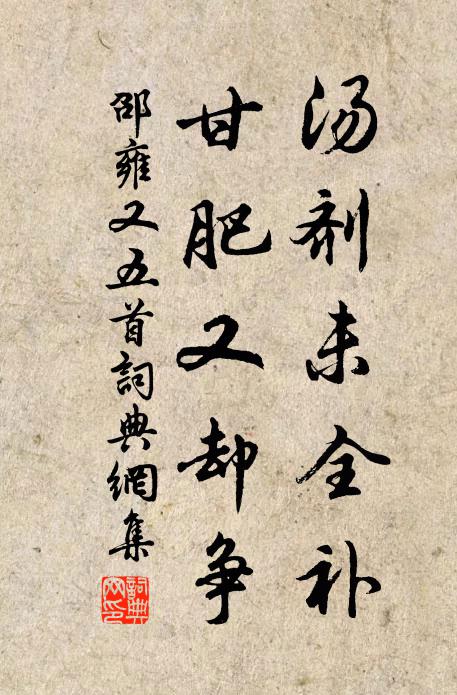 汤剂未全补
甘肥又却争
邵雍又五首詞典網集
詞典網印